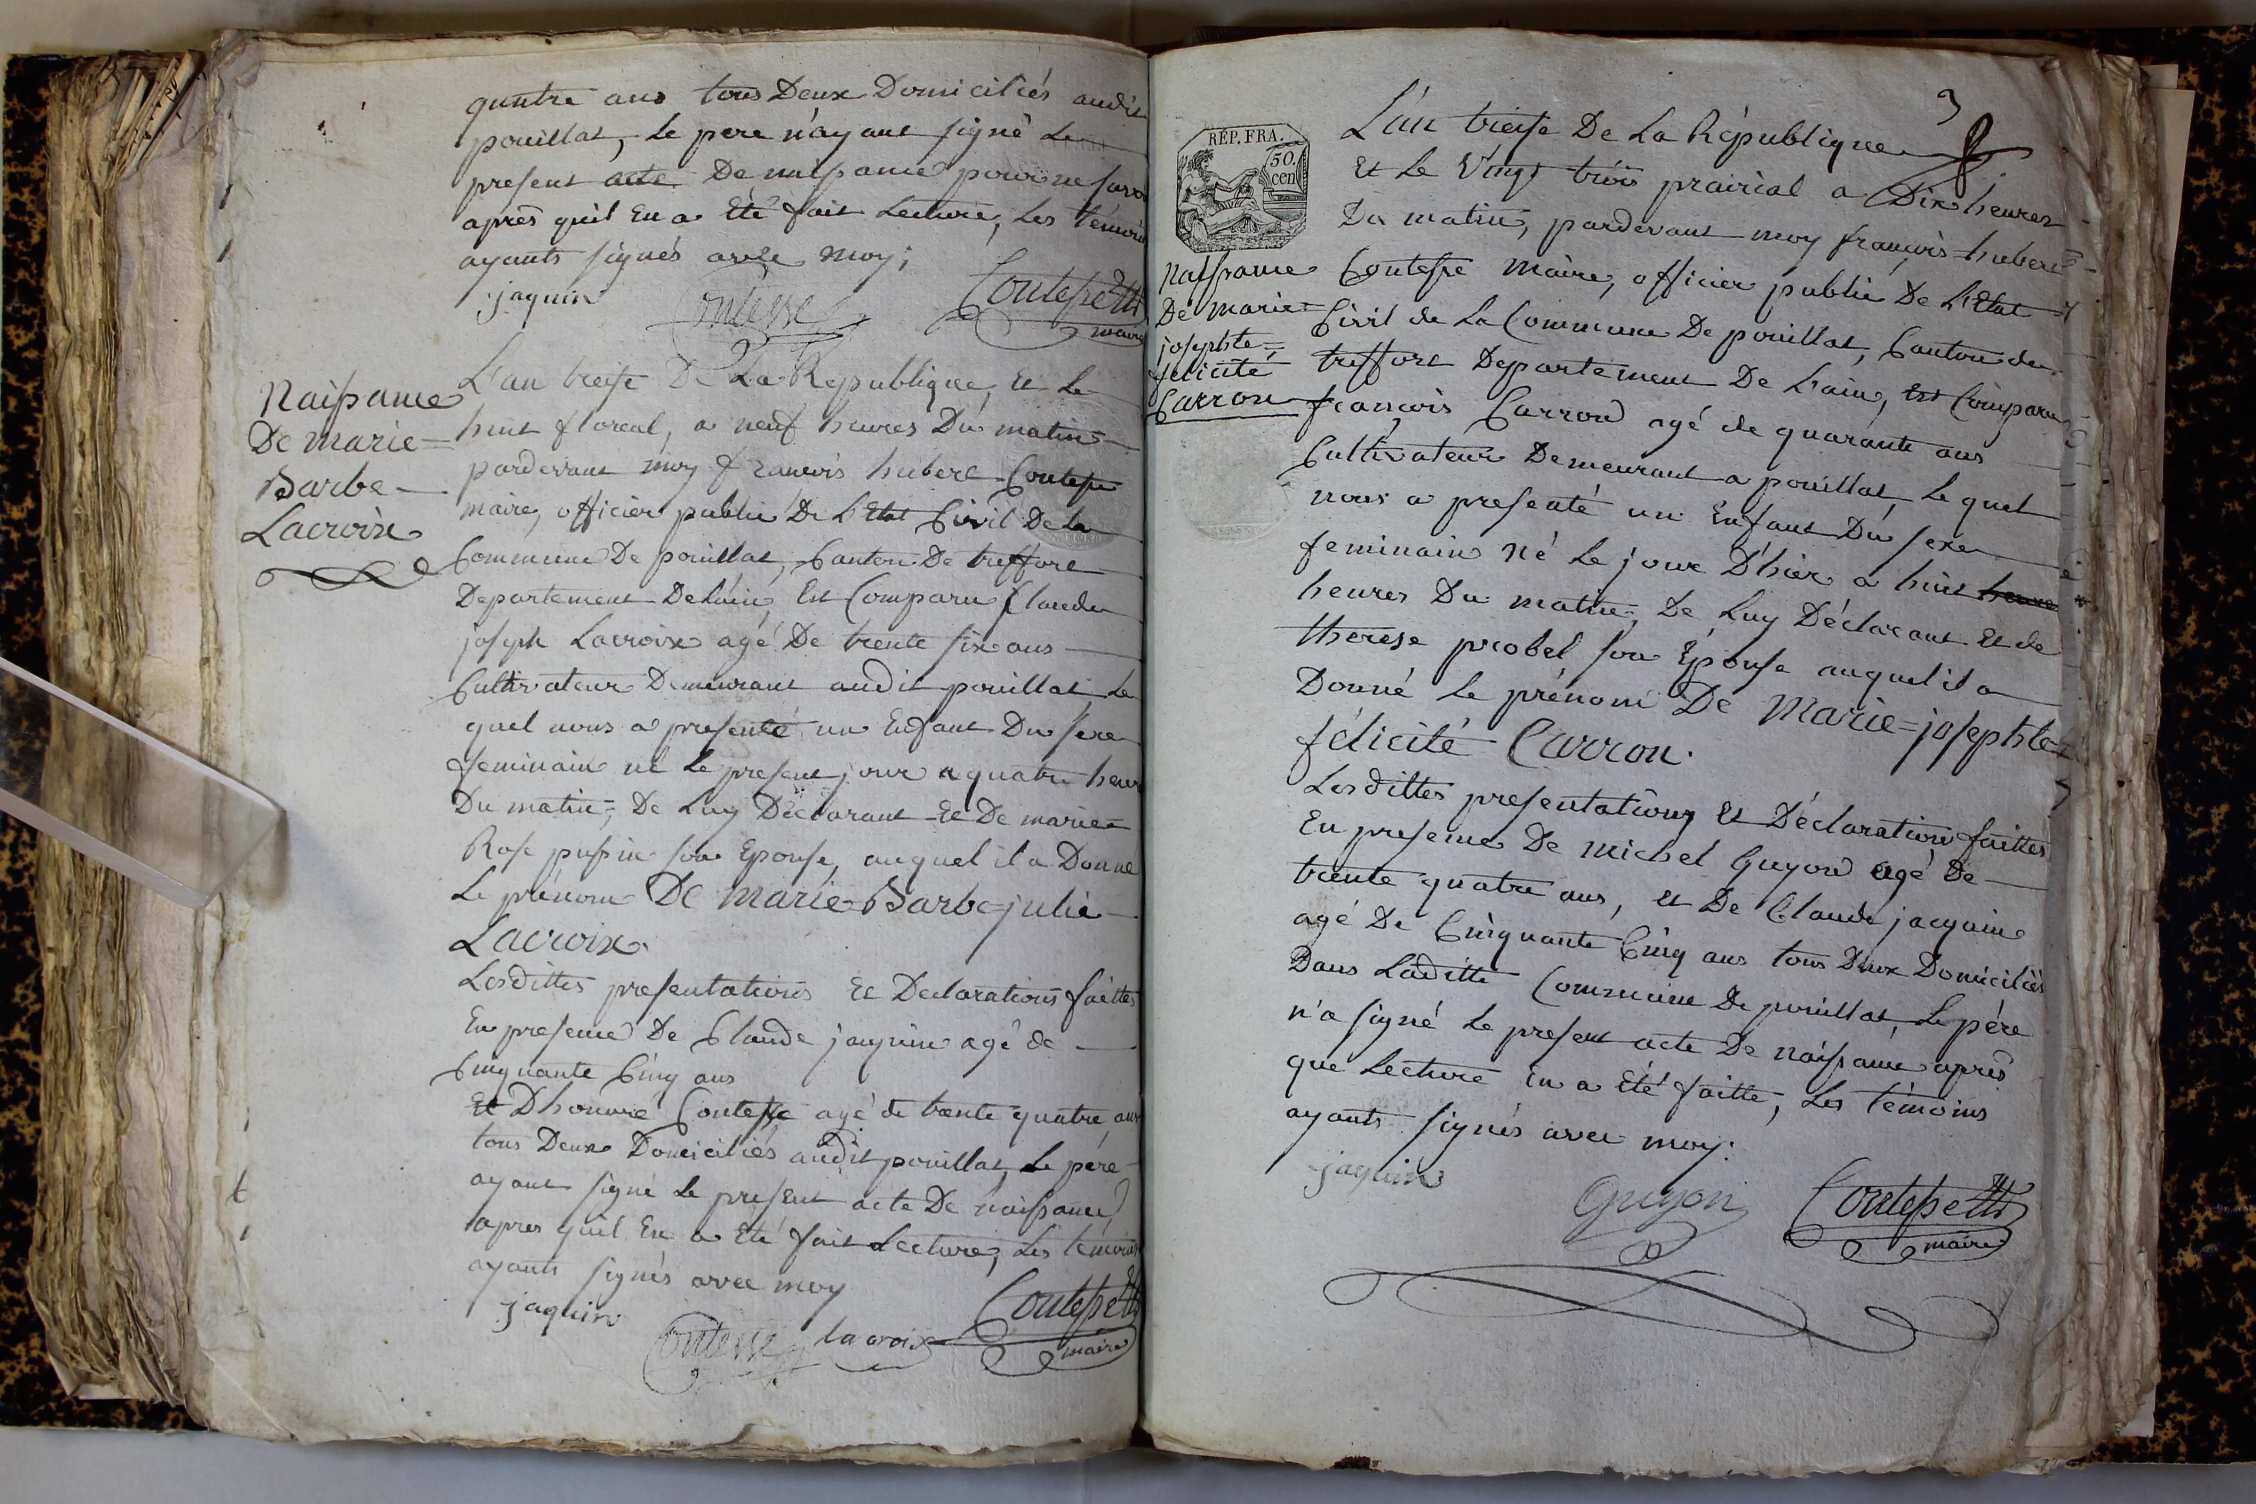 quatre ans tous Deux Domiciliés audit
pouillat, Le pere n'ayant signé Le
present acte De naissance pour ne savoir
après quil En a Eté fait Lecture, Les témoins
ayants signés avec moy;
jaquin Contesse Contesse
maire
Naissance
De marie=
Barbe
Lacroix
L'an treise De La Republique, Et Le
huit floreal, a neuf heures Du matin
pardevant moy francois hubert Contesse
maire, officier public De L'Etat Civil De la
Commune De pouillat, Canton De treffort
Departement De L'ain, Est Comparu Claude
joseph Lacroix agé De trente six ans
Cultivateur Demeurant audit pouillat Le
quel nous a presenté un Enfant Du sexe
feminain né Le present jour a quatre heures
Du matin, De Luy Déclarant Et De marie=
Rose pussin son Epouse, auquel il a Donné
Le prénom De Marie=Barbe=julie
Lacroix.
Lesdittes presentations Et Declarations faittes
En presence De Claude jaquin agé de
Cinquante Cinq ans
Et D'honnoré Contesse agé de trente quatre ans
tous Deux Domiciliés audit pouillat, Le pere
ayant signé Le present acte De naissance,
apres quil En a Eté fait Lecture, Les témoins
ayants signés avec moy
jaquin Contesse lacroix Contesse
maire
3
RÉP. FRA.
50.
cen
Naissance
De marie=
josephte=
félicité
Carron
L'an treise De La République
Et Le Vingt trois prairial a Dix heures
Du matin, pardevant moy françois=hubert
Contesse Maire, officier public De L'Etat
Civil de La Commune De pouillat, Canton de
treffort Departement De L'ain, Est Comparu
françois Carron agé de quarante ans
Cultivateur Demeurant a pouillat, Le quel
nous a presenté un Enfant Du sexe
feminain né Le jour D'hier a huit heure
heures Du matin, De Luy Déclarant Et de
therese probel son Epouse auquel il a
Donné Le prénom De Marie=josephte=
félicité Carron.
Lesdittes presentations Et Déclarations faittes
En presence De michel Guyon agé De
trente quatre ans, Et De Claude jacquin
agé De Cinquante Cinq ans tous Deux Domiciliés
Dans Laditte Commune De pouillat, Le père
n'a signé Le present acte De naissance après
que Lecture en a Eté faitte, Les témoins
ayants signés avec moy.
jaquin Guyon Contesse
maire